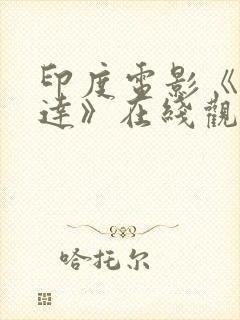 印度電影《
達》在綫觀
哈托尔